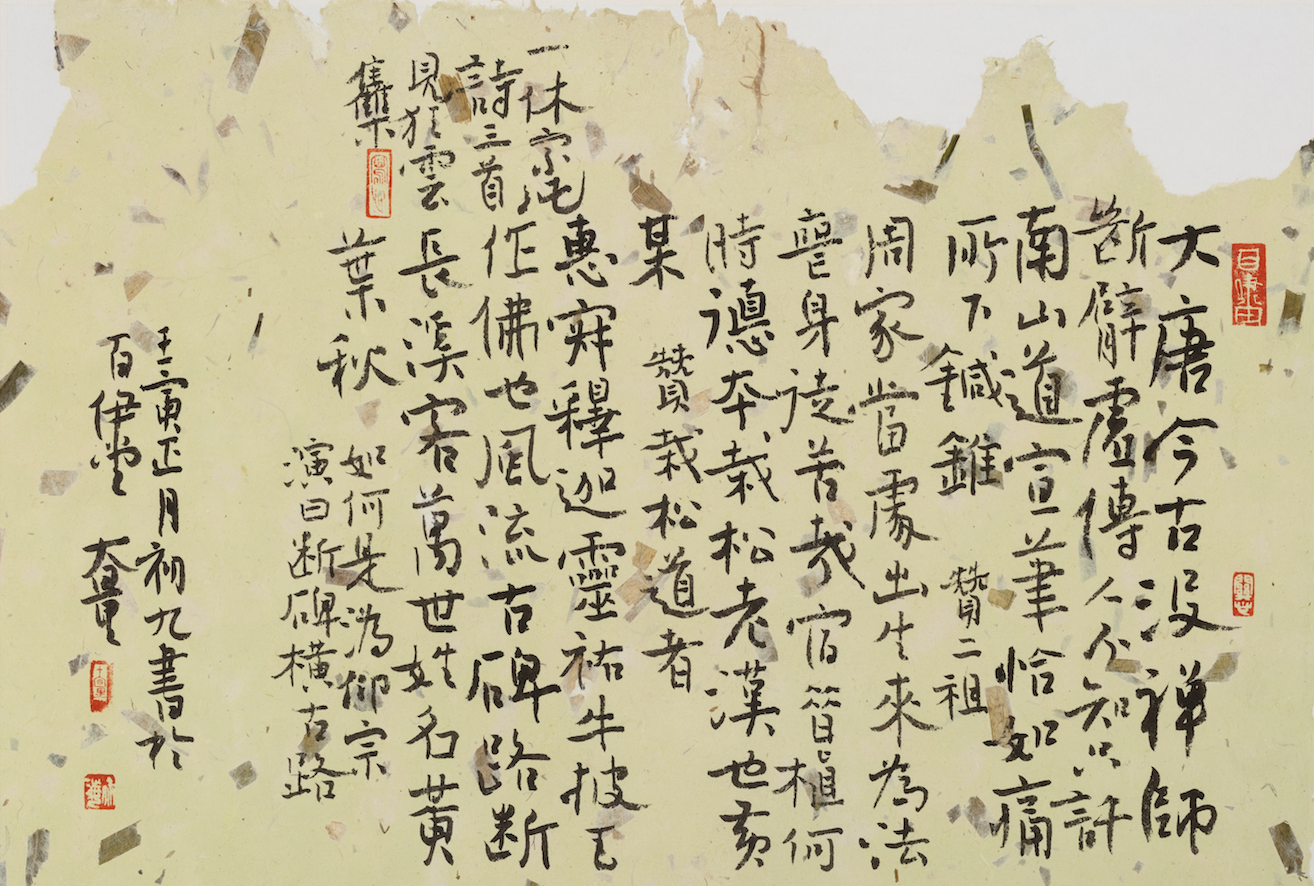 大唐今古没禪師
斷臂虛傳人人知只許
南山道宣筆恰如痛
所下鍼錐 贊二祖
周家當處出生來為法
喪身徒苦哉宿習植何
時德本栽松老漢也黃
某 贊栽松道者
惠寂釋迦靈祐牛披毛
作佛也風流古碑路斷
長溪客萬世姓名黃
葉秋 如何是溈仰宗
演曰断碑橫古路
一休宗純
詩三首
見狂雲
集
壬寅正月初九書於
百伊堂